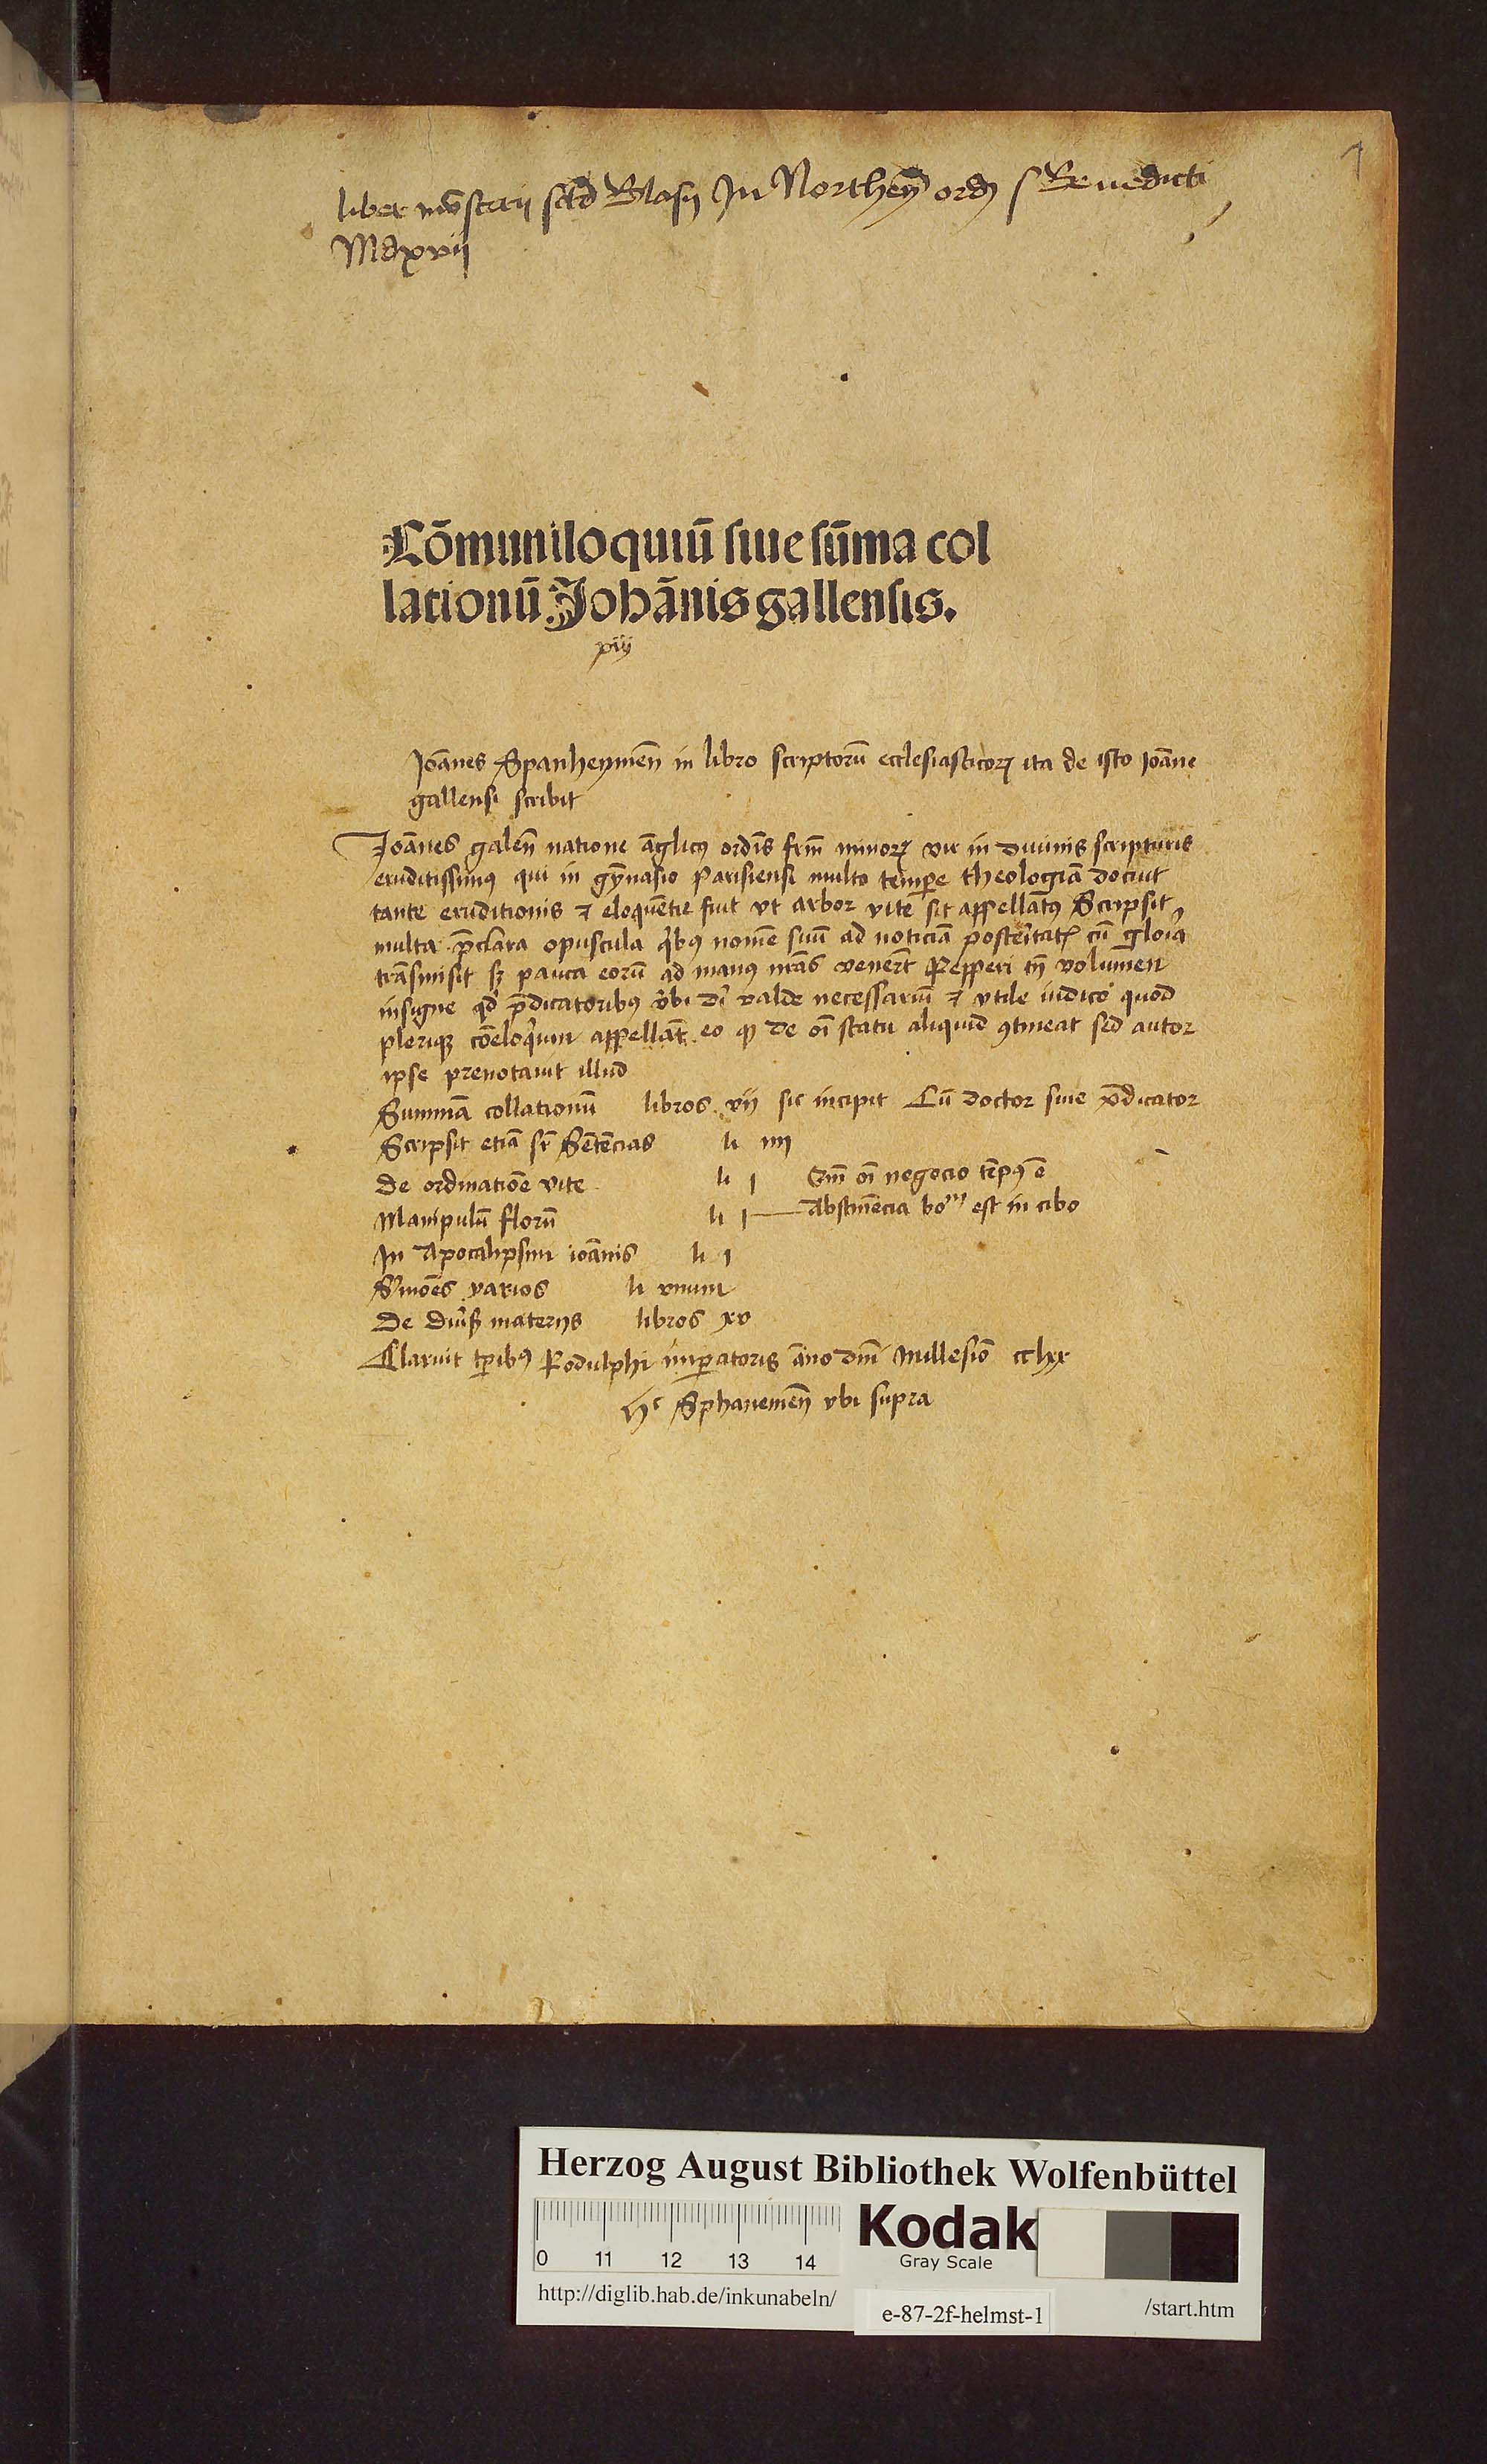 1
liber mōsterij sctī Blasij In Northeȳ ordꝭ s Benedicti
Mdxvij
Cōmuniloquiū siue sūma col
lationū Johānis gallensis.
Joānes Spanheymeñ in libro scriptorū ecclesiasticorꝝ ita de isto Joāne
gallensi scribit
Joānes galeñ natione āglicꝰ ordīs frm̄ minorꝝ vir in diuinis scripturis
eruditissimꝰ qui in gȳnasio Parisiensi multo tempore theologiā docuit
tante eruditionis ⁊ eloquētie fuit vt arbor vite sit appellatꝰ Scripsit
multa p̄clara opuscula qͥbꝰ nomē suū ad noticiā posteritatꝭ cū gloīa
trāsmisit sꝫ pauca eorū ad manꝰ nrās venerūt Repperi tn̄ volumen
insigne qd̄ p̄dicatoribꝰ vͤbi dī valde necessariū ⁊ vtile iudico quod
pleriqꝫ cōeloqͥum appellāt eo ꝙ de oī statu aliquid ꝯtineat sed autor
ipse prenotauit illud
Summā collationū libros vij sic incipit Cū doctor siue p̄dicator
Scripsit etiā sr̄ Sētēcias li iiij
De ordinatiōe vite li j oī negocio tēpꝰ ē
Manipulū florū li j Abstinēcia est in cibo
In Apocalipsim ioānis li j
Smōes varios li vnum
De diuīs materijs libros xv
Claruit tꝑibꝰ Rodulphi imꝑatoris āno dnī Millesīo cclxx
hͨ Sphanemeñ vbi supra
Herzog August Bibliothek Wolfenbüttel
0 11 12 13 14
Kodak
Gray Scale
http://diglib.hab.de/inkunabeln/
e-87-2f-helmst-1
/start.htm